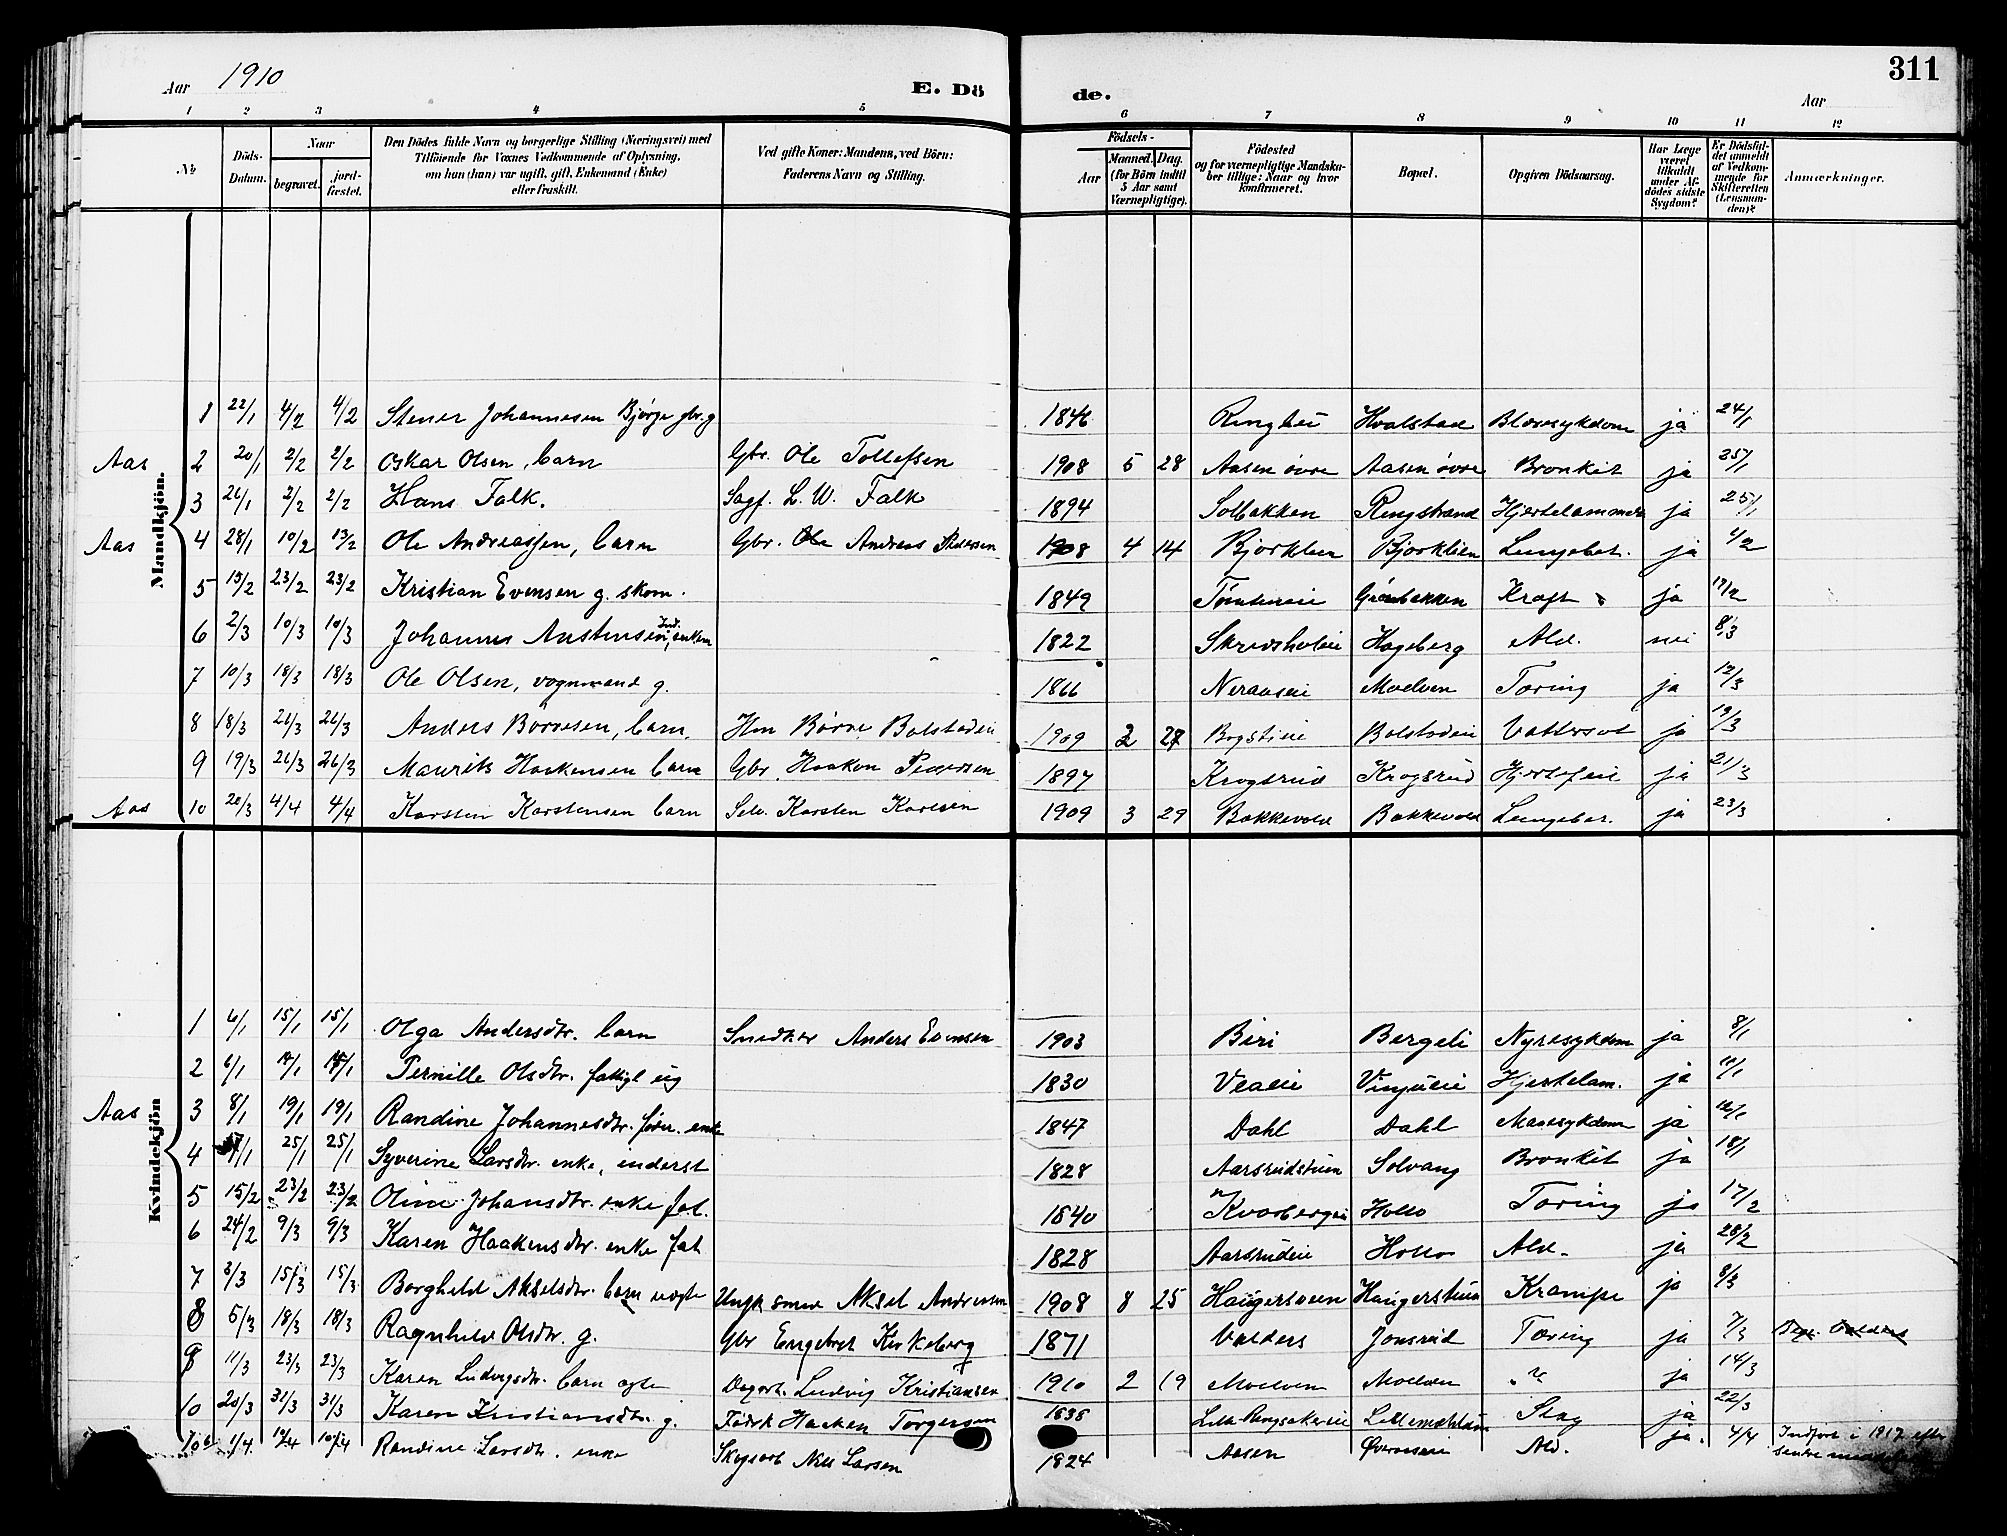 311
Aar 1910 E. Dö de. Aar
1 2 3 4 5 6 7 8 9 10 11 12
No
Döds-Datum.
Naar
begravet.
jord-fæstet.
Den Dödes fulde Navn og borgerlige Stilling (Næringsvei) med
Tilföiende for Voxnes Vedkommende af Oplysning,
om han (hun) var ugift, gift, Enkemand (Enke)
eller fraskilt.
Ved gifte Koner: Mandens, ved Börn:
Faderens Navn og Stilling.
Födsels-
Aar
Maaned. Dag.
(for Börn indtil
5 Aar samt
Værnepligtige).
Födested
og for værnepligtige Mandska-
ber tillige: Naar og hvor
konfirmeret.
Bopæl.
Opgiven Dödsaarsag.
Har Læge
været
tilkaldt
under Af-
dödes sidste
Sygdom?
Er Dödsfal-
det anmeldt
af Vedkom-
mende for
Skifteretten
(Lensman-
den)?
Anmærkninger.
Mandkjön.
1 22/1 4/2 4/2 Stener Johannesen Bjørge gbr. g 1846 Ringbu Hvalstad Blæresykdom ja 24/1
Aas 2 20/1 2/2 2/2 Oskar Olsen, barn Gbr. Ole Tollefsen 1908 5 28 Aasen øvre Aasen øvre Bronkit ja 25/1
3 26/1 2/2 2/2 Hans Falk. Sagf. L. W. Falk 1894 Solbakken Ringstrand Hjertelammelse ja 25/1
Aas 4 28/1 10/2 13/2 Ole Andreassen, barn Gbr. Ole Andreas Pedersen 1908 4 14 Bjørklien Bjørklien Lungebet. ja 4/2
5 15/2 23/2 23/2 Kristian Evensen g. skom. 1849 Tømtereie Grønbakken Kræft ja 17/2
6 2/3 10/3 10/3 Johannes Austensen, Ind. enkem 1822 Skredsholeie Hageberg Ald. nei 8/3
7 10/3 18/3 18/3 Ole Olsen, vognmand g. 1866 Neraaseie Moelven Tæring ja 12/3
8 18/3 26/3 26/3 Anders Børresen, barn. Hm Børre Bolstadeie 1909 2 27 Bogstieie Bolstadeie Vattersot ja 19/3
9 19/3 26/3 26/3 Maurits Haakensen barn Gbr. Haakon Pedersen 1897 Krogsrud Krogsrud Hjertefeil ja 21/3
Aas 10 20/3 4/4 4/4 Karsten Karstensen barn Selv. Karsten Karlsen 1909 3 29 Bakkevold Bakkevold Lungebet. ja 23/3
Kvindekjön
1 6/1 15/1 15/1 Olga Andersdtr. barn Snedker Anders Evensen 1903 Biri Bergeli Nyresykdom ja 8/1
2 6/1 14/1 15/1 Pernille Olsdtr. fattigl. ug 1830 Veaeie Vinjueie Hjertelam. ja 11/1
Aas 3 8/1 19/1 19/1 Randine Johannesdtr. føder. enke 1847 Dahl Dahl Mavesykdom ja
4 25/1 25/1 Syverine Larsdtr. enke, inderst 1828 Aarsrudstuen Solvang Bronkit ja 18/1
5 15/2 23/2 23/2 Oline Johansdtr. enke fat. 1840 Kvarbergeie Holso Tæring ja 17/2
6 24/2 9/3 9/3 Karen Haakensdtr. enke fat 1828 Aarsrudeie Holso Ald. ja 28/2
7 3/3 15/3 15/3 Borghild Akselsdtr. barn uægte Ungk smed Aksel Andersen 1908 8 25 Haugersveen Haugerstuen Krampe ja 8/3
8 5/3 18/3 18/3 Ragnhild Olsdtr. g. Gbr Engebret Kirkeberg 1871 Valders Jonsrud Tæring ja 7/3 Begr. Valders
9 11/3 23/3 23/3 Karen Ludvigsdtr. barn ægte Dagarb. Ludvig Kristiansen 1910 2 19 Moelven Moelven " ja 14/3
10 20/3 31/3 31/3 Karen Kristiansdtr. g. Føderk Haaken Torgersen 1838 Lille Ringsakereie Slag ja 22/3
10b 1/4. 10/4 10/4 Randine Larsdtr. enke Skysarb Nils Larsen 1824 Aasen Øveraaseie Ald. ja. 4/4 Indført i 1917 efter
senere